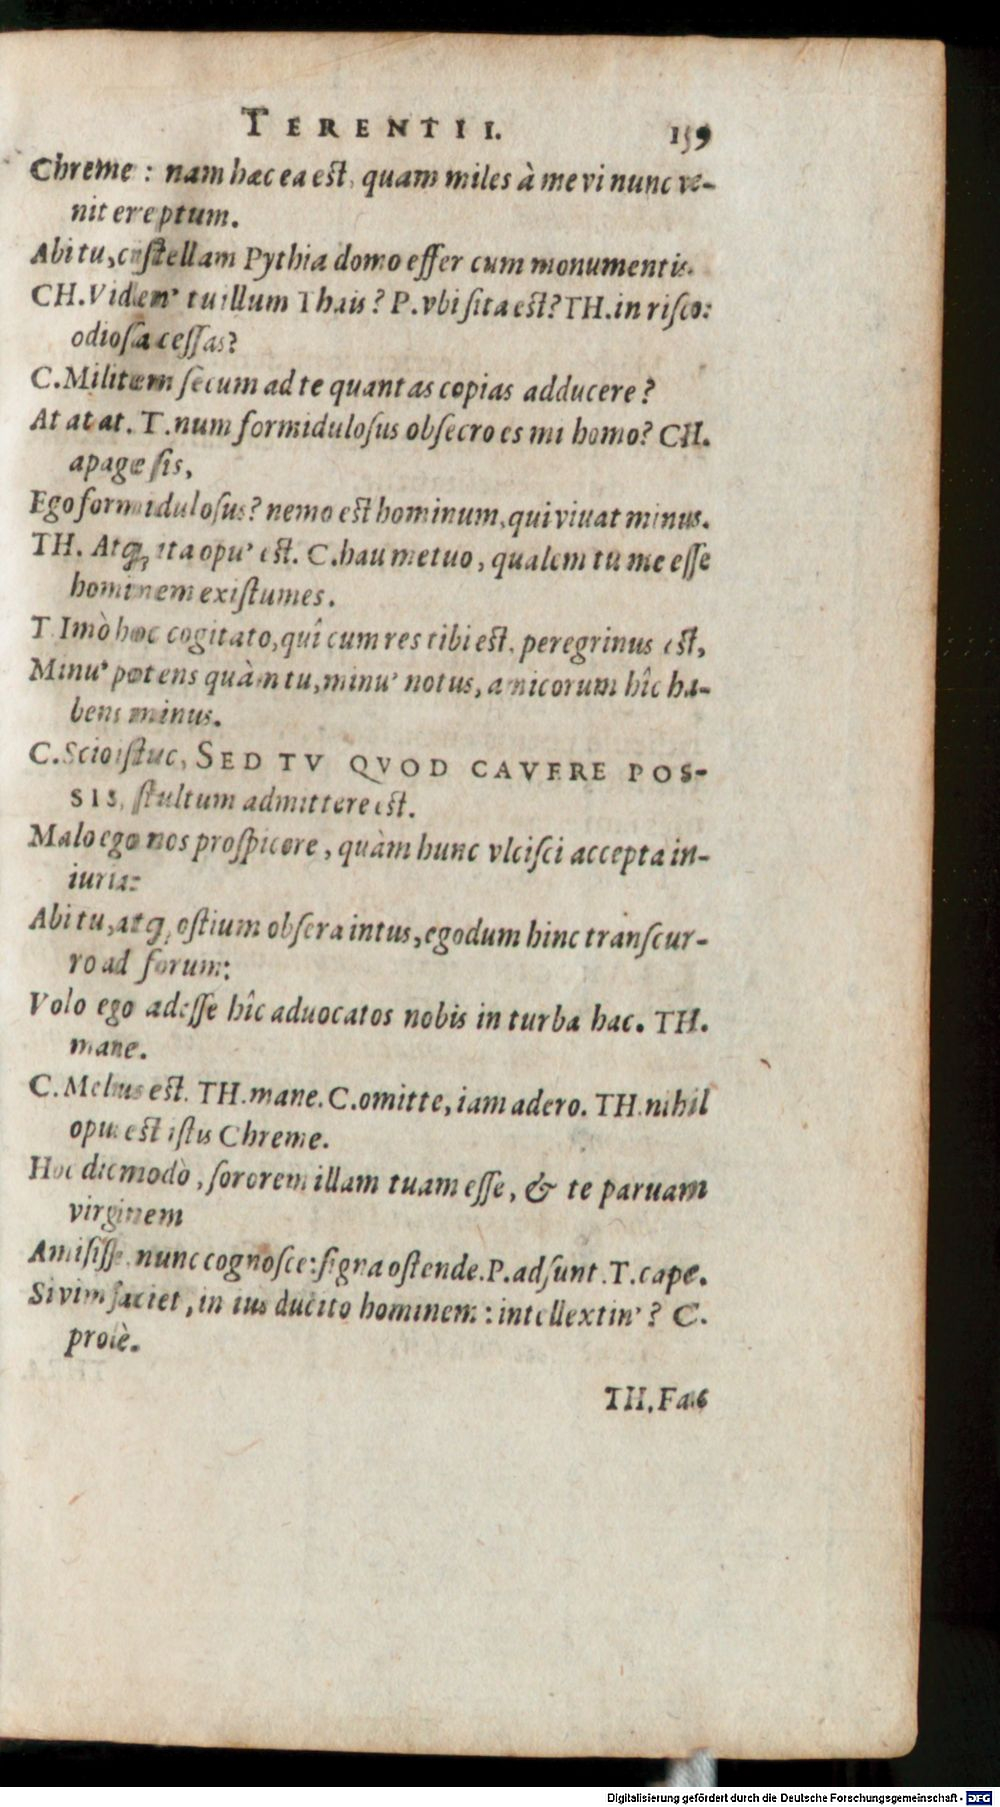 TERENTII. 159
Chreme : nam hæc ea est, quam miles à me vi nunc ve-
nit ereptum.
Abi tu, cistellam Pythia domo effer cum monumentis.
CH. Viden' tu illum Thais? P. vbi sita est? TH. in risco:
odiosa cessas?
C. Militem secum ad te quantas copias adducere?
At at at. T. num formidulosus obsecro es mi homo? CH.
apage sis,
Ego formidulosus? nemo est hominum, qui viuat minus.
TH. Atq; ita opu' est. C. hau metuo, qualem tu me esse
hominem existumes.
T. Imò hoc cogitato, quî cum res tibi est, peregrinus est,
Minu' potens quàm tu, minu' notus, amicorum hîc ha-
bens minus.
C. Scio istuc, SED TV QVOD CAVERE POS-
SIS, stultum admittere est.
Malo ego nos prospicere, quàm hunc vlcisci accepta in-
iuria:
Abi tu, atq; ostium obsera intus, ego dum hinc transcur-
ro ad forum:
Volo ego adesse hîc aduocatos nobis in turba hac. TH.
mane.
C. Melius est. TH. mane. C. omitte, iam adero. TH. nihil
opus est istis Chreme.
Hoc dic modò, sororem illam tuam esse, & te paruam
virginem
Amisisse, nunc cognosce: signa ostende. P. adsunt. T. cape.
Si vim faciet, in ius ducito hominem: intellextin'? C.
probè.
TH. Fac
Digitalisierung gefördert durch die Deutsche Forschungsgemeinschaft - DFG